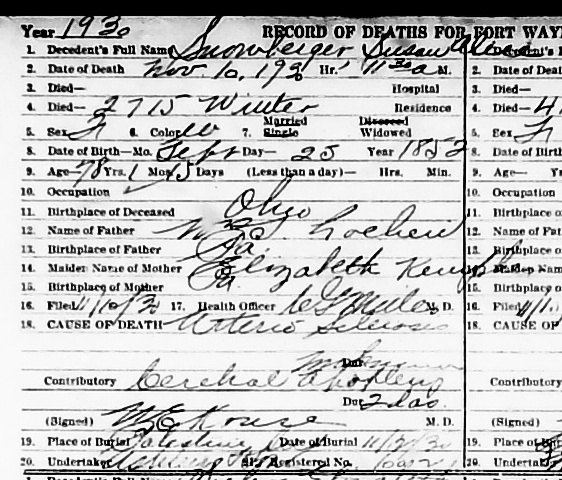 Year 1930 RECORD OF DEATHS FOR FORT WAY
1. Decedent's Full Name Snowberger Susan
2. Date of Death Nov. 10, 1930 Hr. 11 30 a M. 2. Date of Deat
3. Died— Hospital 3. Died—
4. Died— 2715 Winter Residence 4. Died— 4
5. Sex F 6. Color W 7. Married Single Divorced Widowed 5. Sex F
8. Date of Birth—Mo. Sept Day— 25 Year 1852 8. Date of Birth
9. Age— 78 Yrs. 1 Mos. 15 Days (Less than a day)— Hrs. Min. 9. Age— Y
10. Occupation 10. Occupation
11. Birthplace of Deceased Ohio 11. Birthplace o
12. Name of Father Wm. 12. Name of Fat
13. Birthplace of Father Pa. 13. Birthplace o
14. Maiden Name of Mother Elizabeth 14. Maiden Nam
15. Birthplace of Mother Pa 15. Birthplace o
16. Filed 11/10/30 17. Health Officer M. D. 16. Filed 11/1
18. CAUSE OF DEATH Arterio Sclerosis 18. CAUSE OF
Dur.
Contributory Cerebral Apoplexy Contributory
Dur. 2 das.
(Signed) M. D. (Signed)
19. Place of Burial Date of Burial 19. Place of Bur
20. Undertaker 21. Registered No. 20. Undertaker